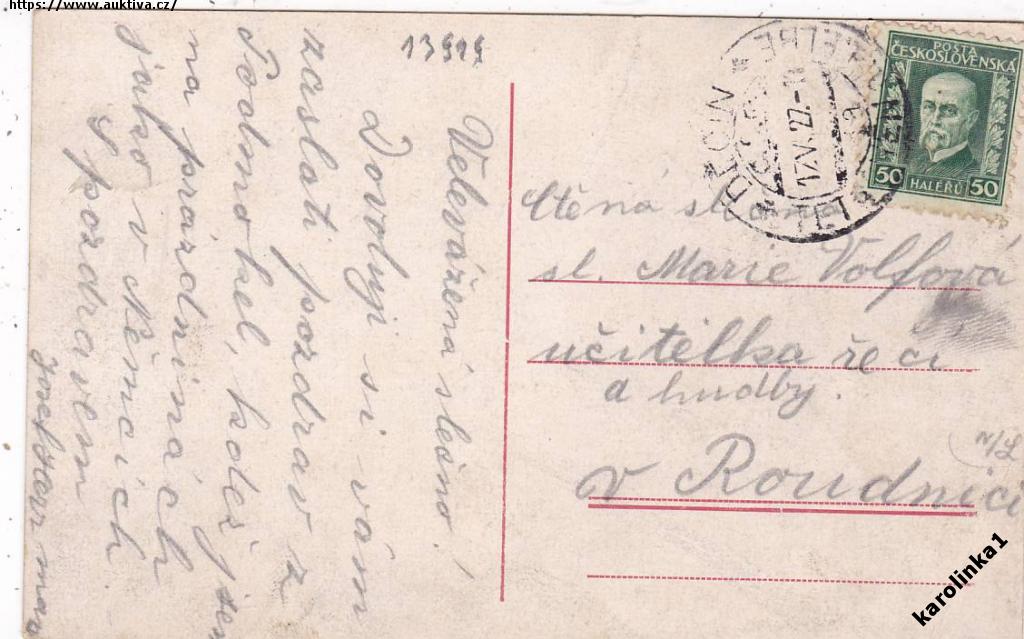 https://www.auktiva.cz/
13919
Velevážená slečno!
Dovoluji si vám
zaslati pozdrav z
kdež jsem
na prázdninách
jako v Němcích.
S pozdravem
Josef
POSTA
ČESKOSLOVENSKÁ
50 HALÉŘŮ 50
17.V.27
Ctěná slečna
sl. Marie Volfová
učitelka řeči
a hudby.
v Roudnici
N/L
karolinka1